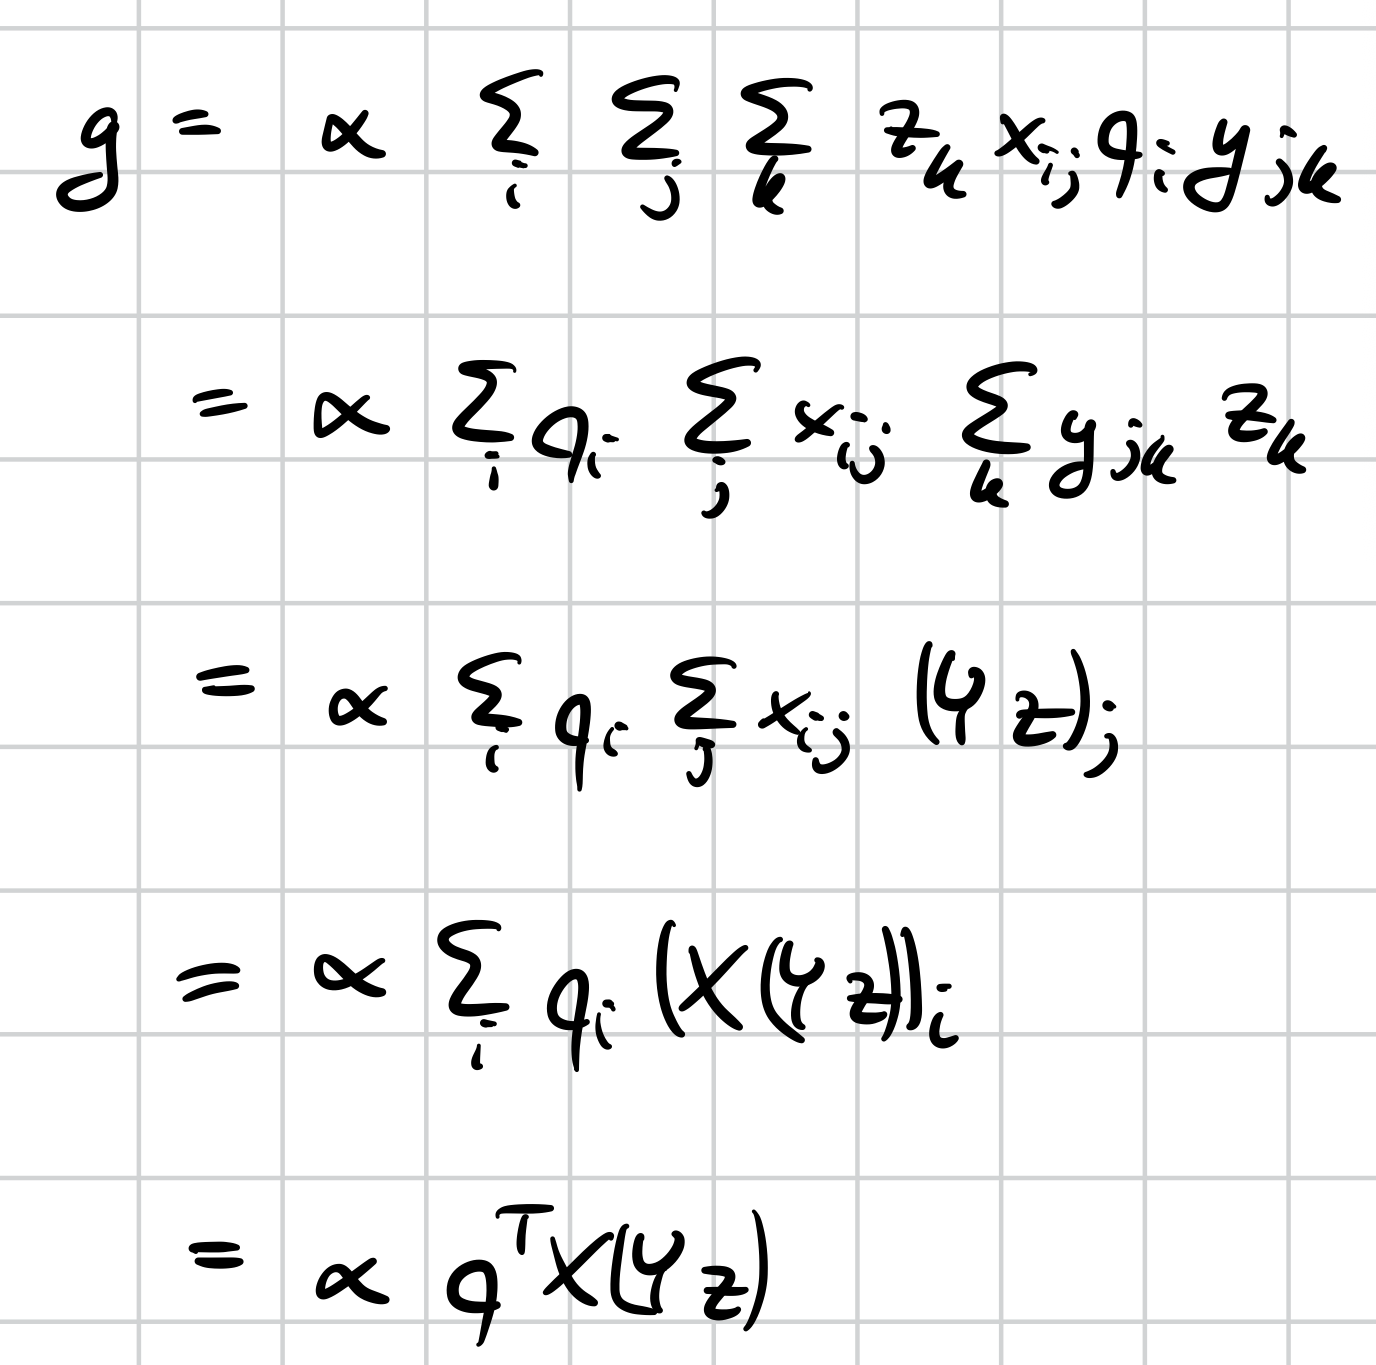 g = α Σ_i Σ_j Σ_k z_k x_ij q_i y_jk
= α Σ_i q_i Σ_j x_ij Σ_k y_jk z_k
= α Σ_i q_i Σ_j x_ij (Y z)_j
= α Σ_i q_i (X(Y z))_i
= α q^T X(Y z)